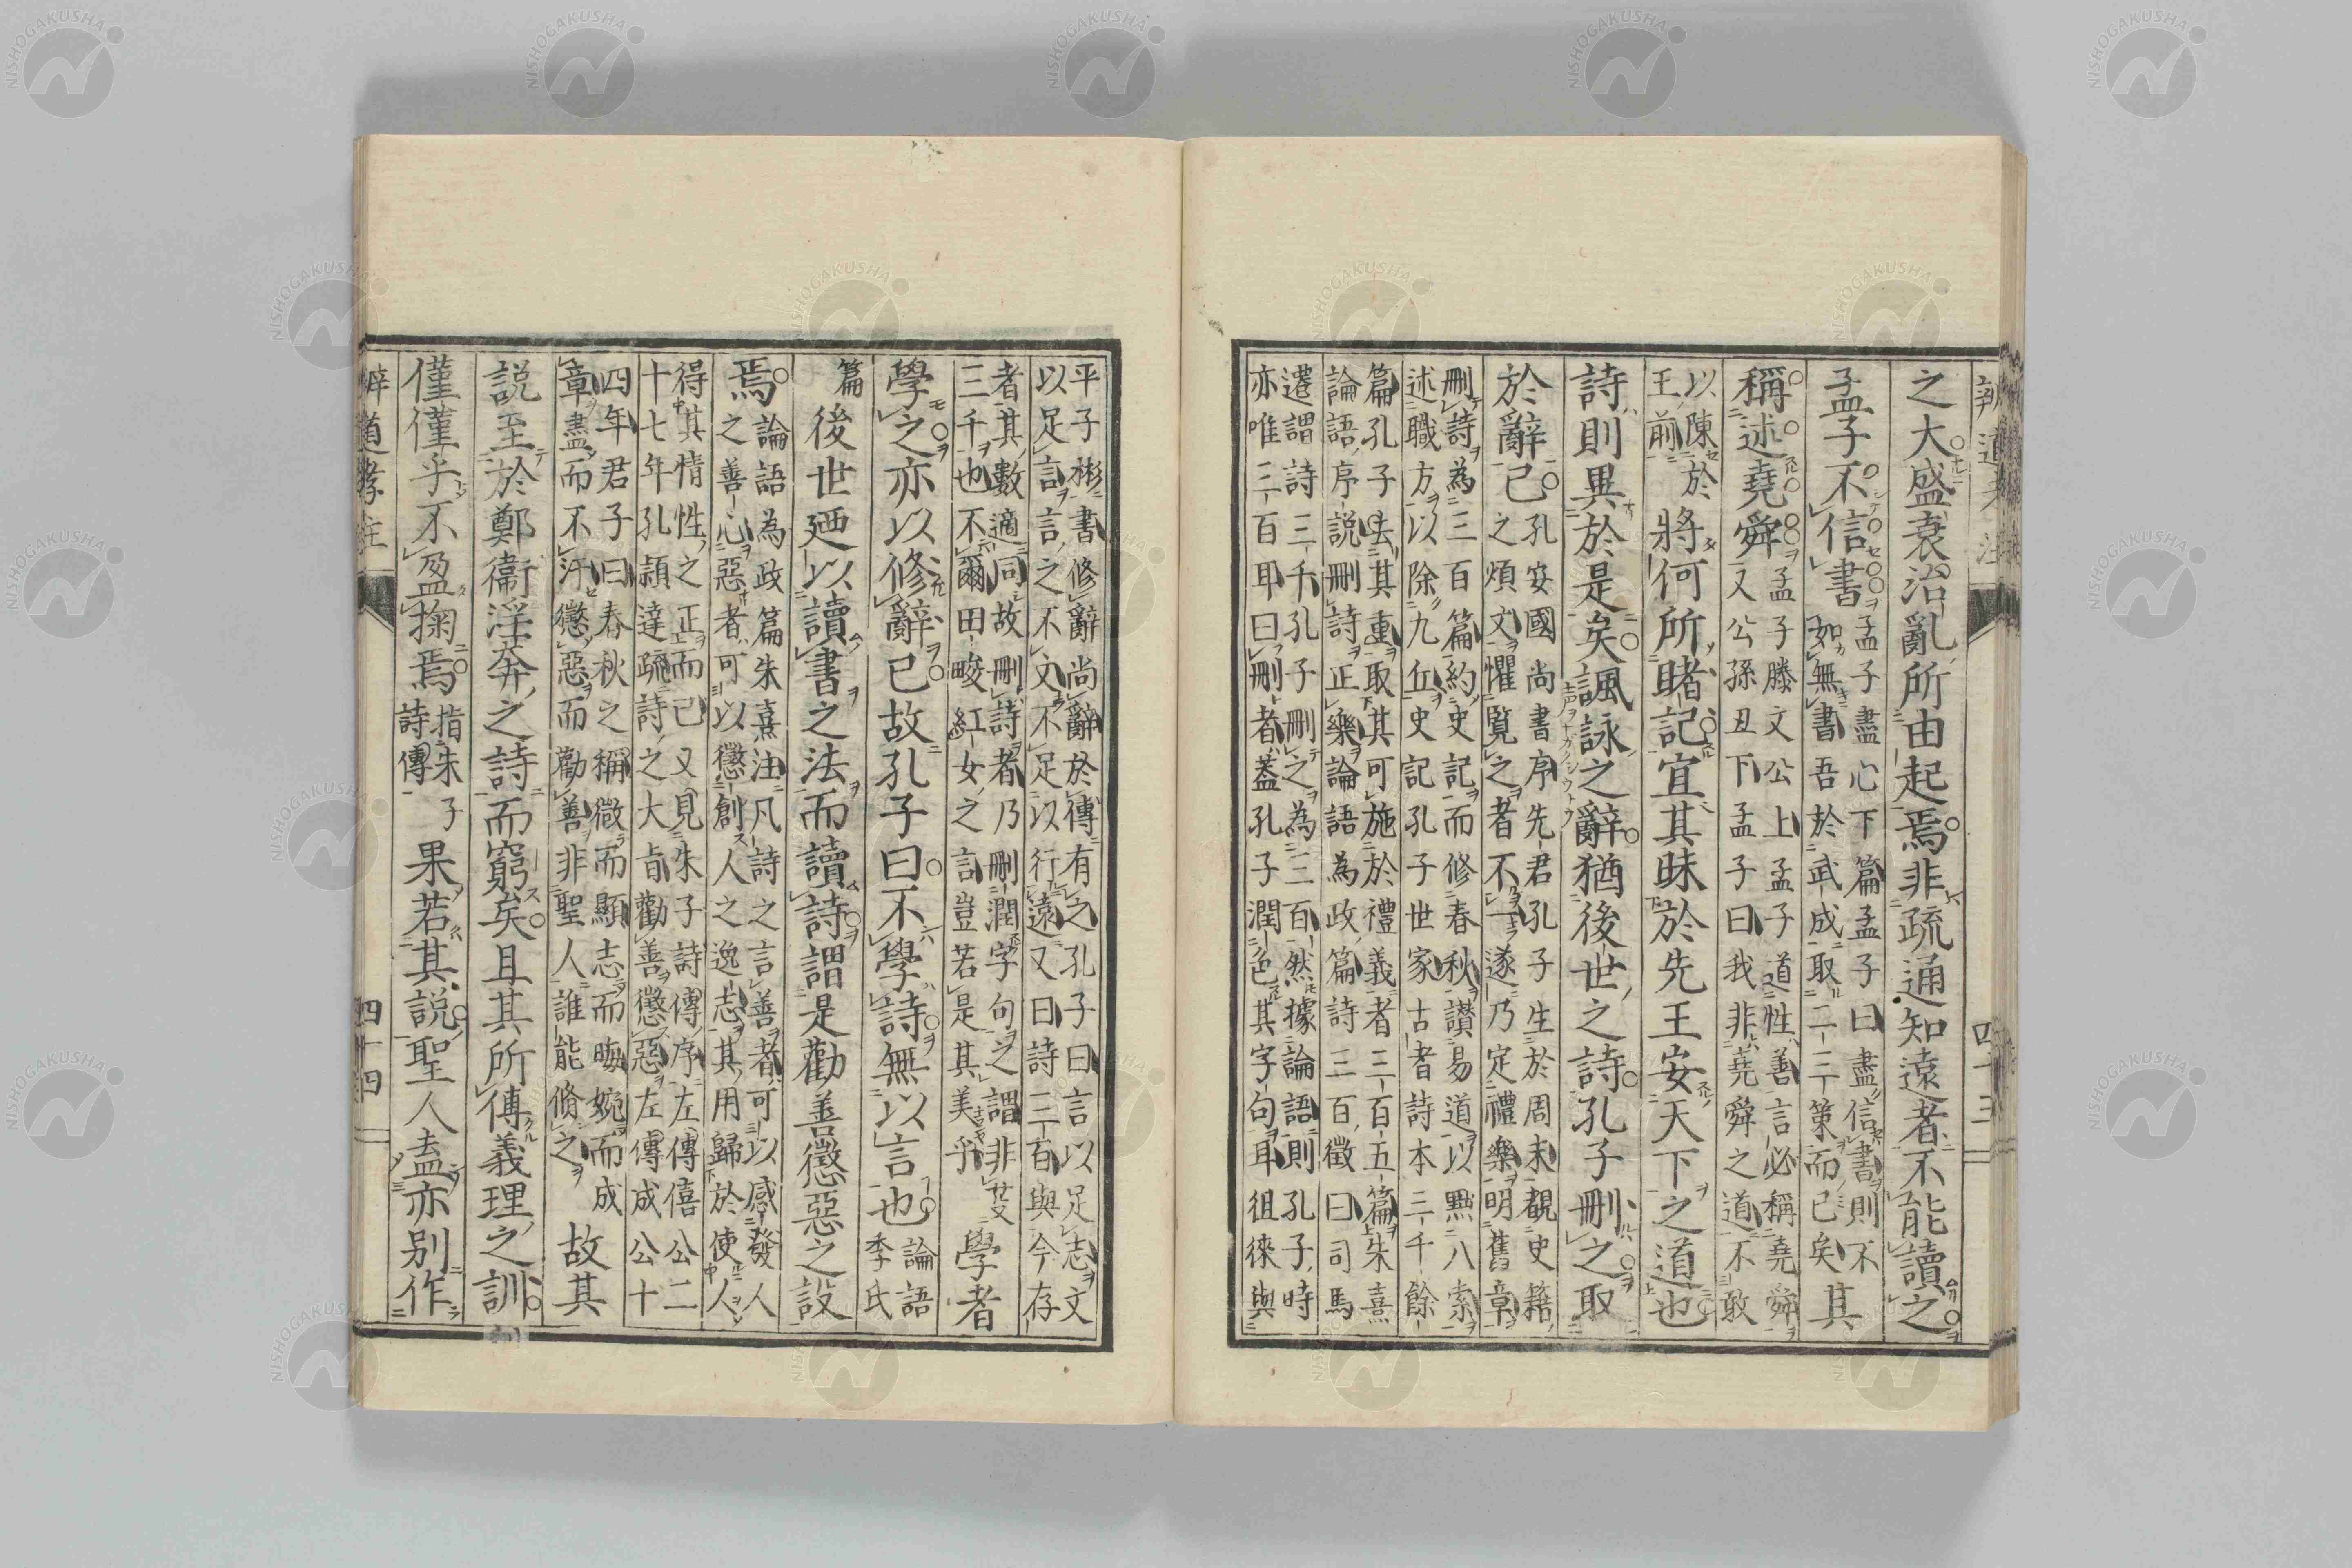 辨道考注 四十三
之大盛衰治亂所由起焉非疏通知遠者不能讀之
孟子不信書
孟子盡心下篇孟子曰盡信書則不
如無書吾於武成取二三策而已矣
其
稱述堯舜
孟子滕文公上孟子道性善言必稱堯舜
又公孫丑下孟子曰我非堯舜之道不敢
以陳於
王前
將何所睹記宜其昧於先王安天下之道也
詩則異於是矣諷詠之辭猶後世之詩孔子刪之取
於辭已
孔安國尚書序先君孔子生於周末覩史籍
之煩文懼覧之者不一遂乃定禮樂明舊章
刪詩為三百篇約史記而修春秋讃易道以黜八索
述職方以除九丘史記孔子世家古者詩本三千餘
篇孔子去其重取其可施於禮義者三百五篇朱熹
論語序説刪詩正樂論語為政篇詩三百徵曰司馬
遷謂詩三千孔子刪之為三百然據論語則孔子時
亦唯三百耳曰刪者蓋孔子潤色其字句耳徂徠與
平子彬書修辭尚辭於傳有之孔子曰言以足志文
以足言言之不文不足以行遠又曰詩三百與今存
者其數適同故刪詩者乃刪潤字句之謂非芟
三千也不爾田畯紅女之言豈若是其美乎
學者
學之亦以修辭已故孔子曰不學詩無以言也
論語
季氏
篇
後世廼以讀書之法而讀詩謂是勸善懲惡之設
焉
論語為政篇朱熹注凡詩之言善者可以感發人
之善心惡者可以懲創人之逸志其用歸於使人
得其情性之正而已又見朱子詩傳序左傳僖公二
十七年孔頴達疏詩之大旨勸善懲惡左傳成公十
四年君子曰春秋之稱微而顯志而晦婉而成
章盡而不汙懲惡而勸善非聖人誰能脩之
故其
説至於鄭衞淫奔之詩而窮矣且其所傳義理之訓
僅僅乎不盈掬焉
指朱子
詩傳
果若其説聖人盍亦別作
辨道考注 四十四